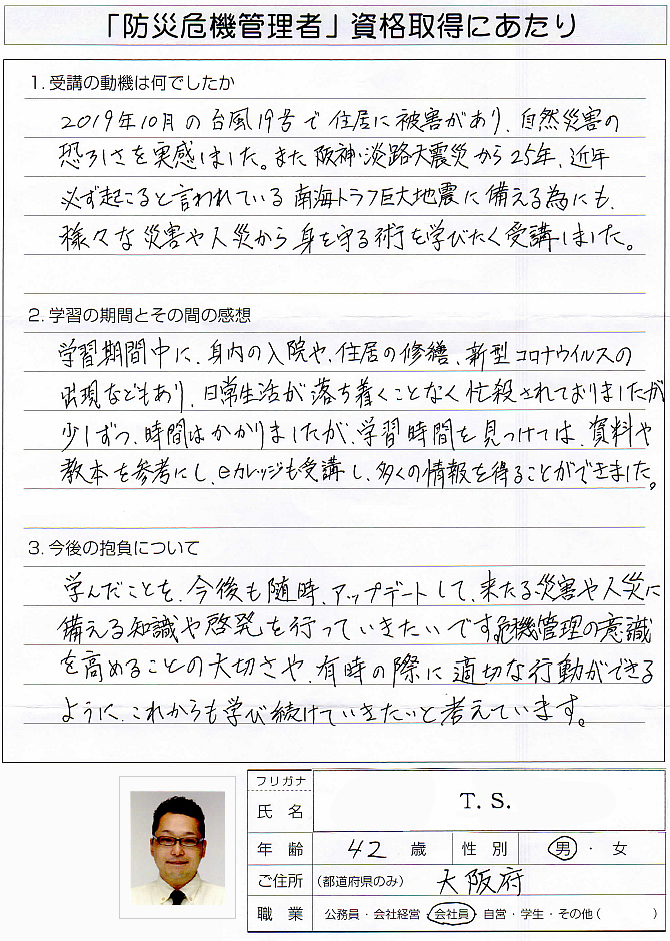 「防災危機管理者」資格取得にあたり
1. 受講の動機は何でしたか
2019年10月の台風19号で住居に被害があり、自然災害の
恐ろしさを実感しました。また阪神・淡路大震災から25年、近年
必ず起こると言われている南海トラフ巨大地震に備える為にも、
様々な災害や人災から身を守る術を学びたく受講しました。
2. 学習の期間とその間の感想
学習期間中に、身内の入院や、住居の修繕、新型コロナウイルスの
出現などもあり、日常生活が落ち着くことなく忙殺されておりましたが
少しずつ、時間はかかりましたが、学習時間を見つけては、資料や
教本を参考にし、eカレッジも受講し、多くの情報を得ることができました。
3. 今後の抱負について
学んだことを、今後も随時、アップデートして、来たる災害や人災に
備える知識や啓発を行っていきたいです。危機管理の意識
を高めることの大切さや、有時の際に適切な行動ができる
ように、これからも学び続けていきたいと考えています。
フリガナ
氏名 T. S.
年齢 42歳 性別 男・女
ご住所 (都道府県のみ) 大阪府
職業 公務員・会社経営・会社員・自営・学生・その他( )